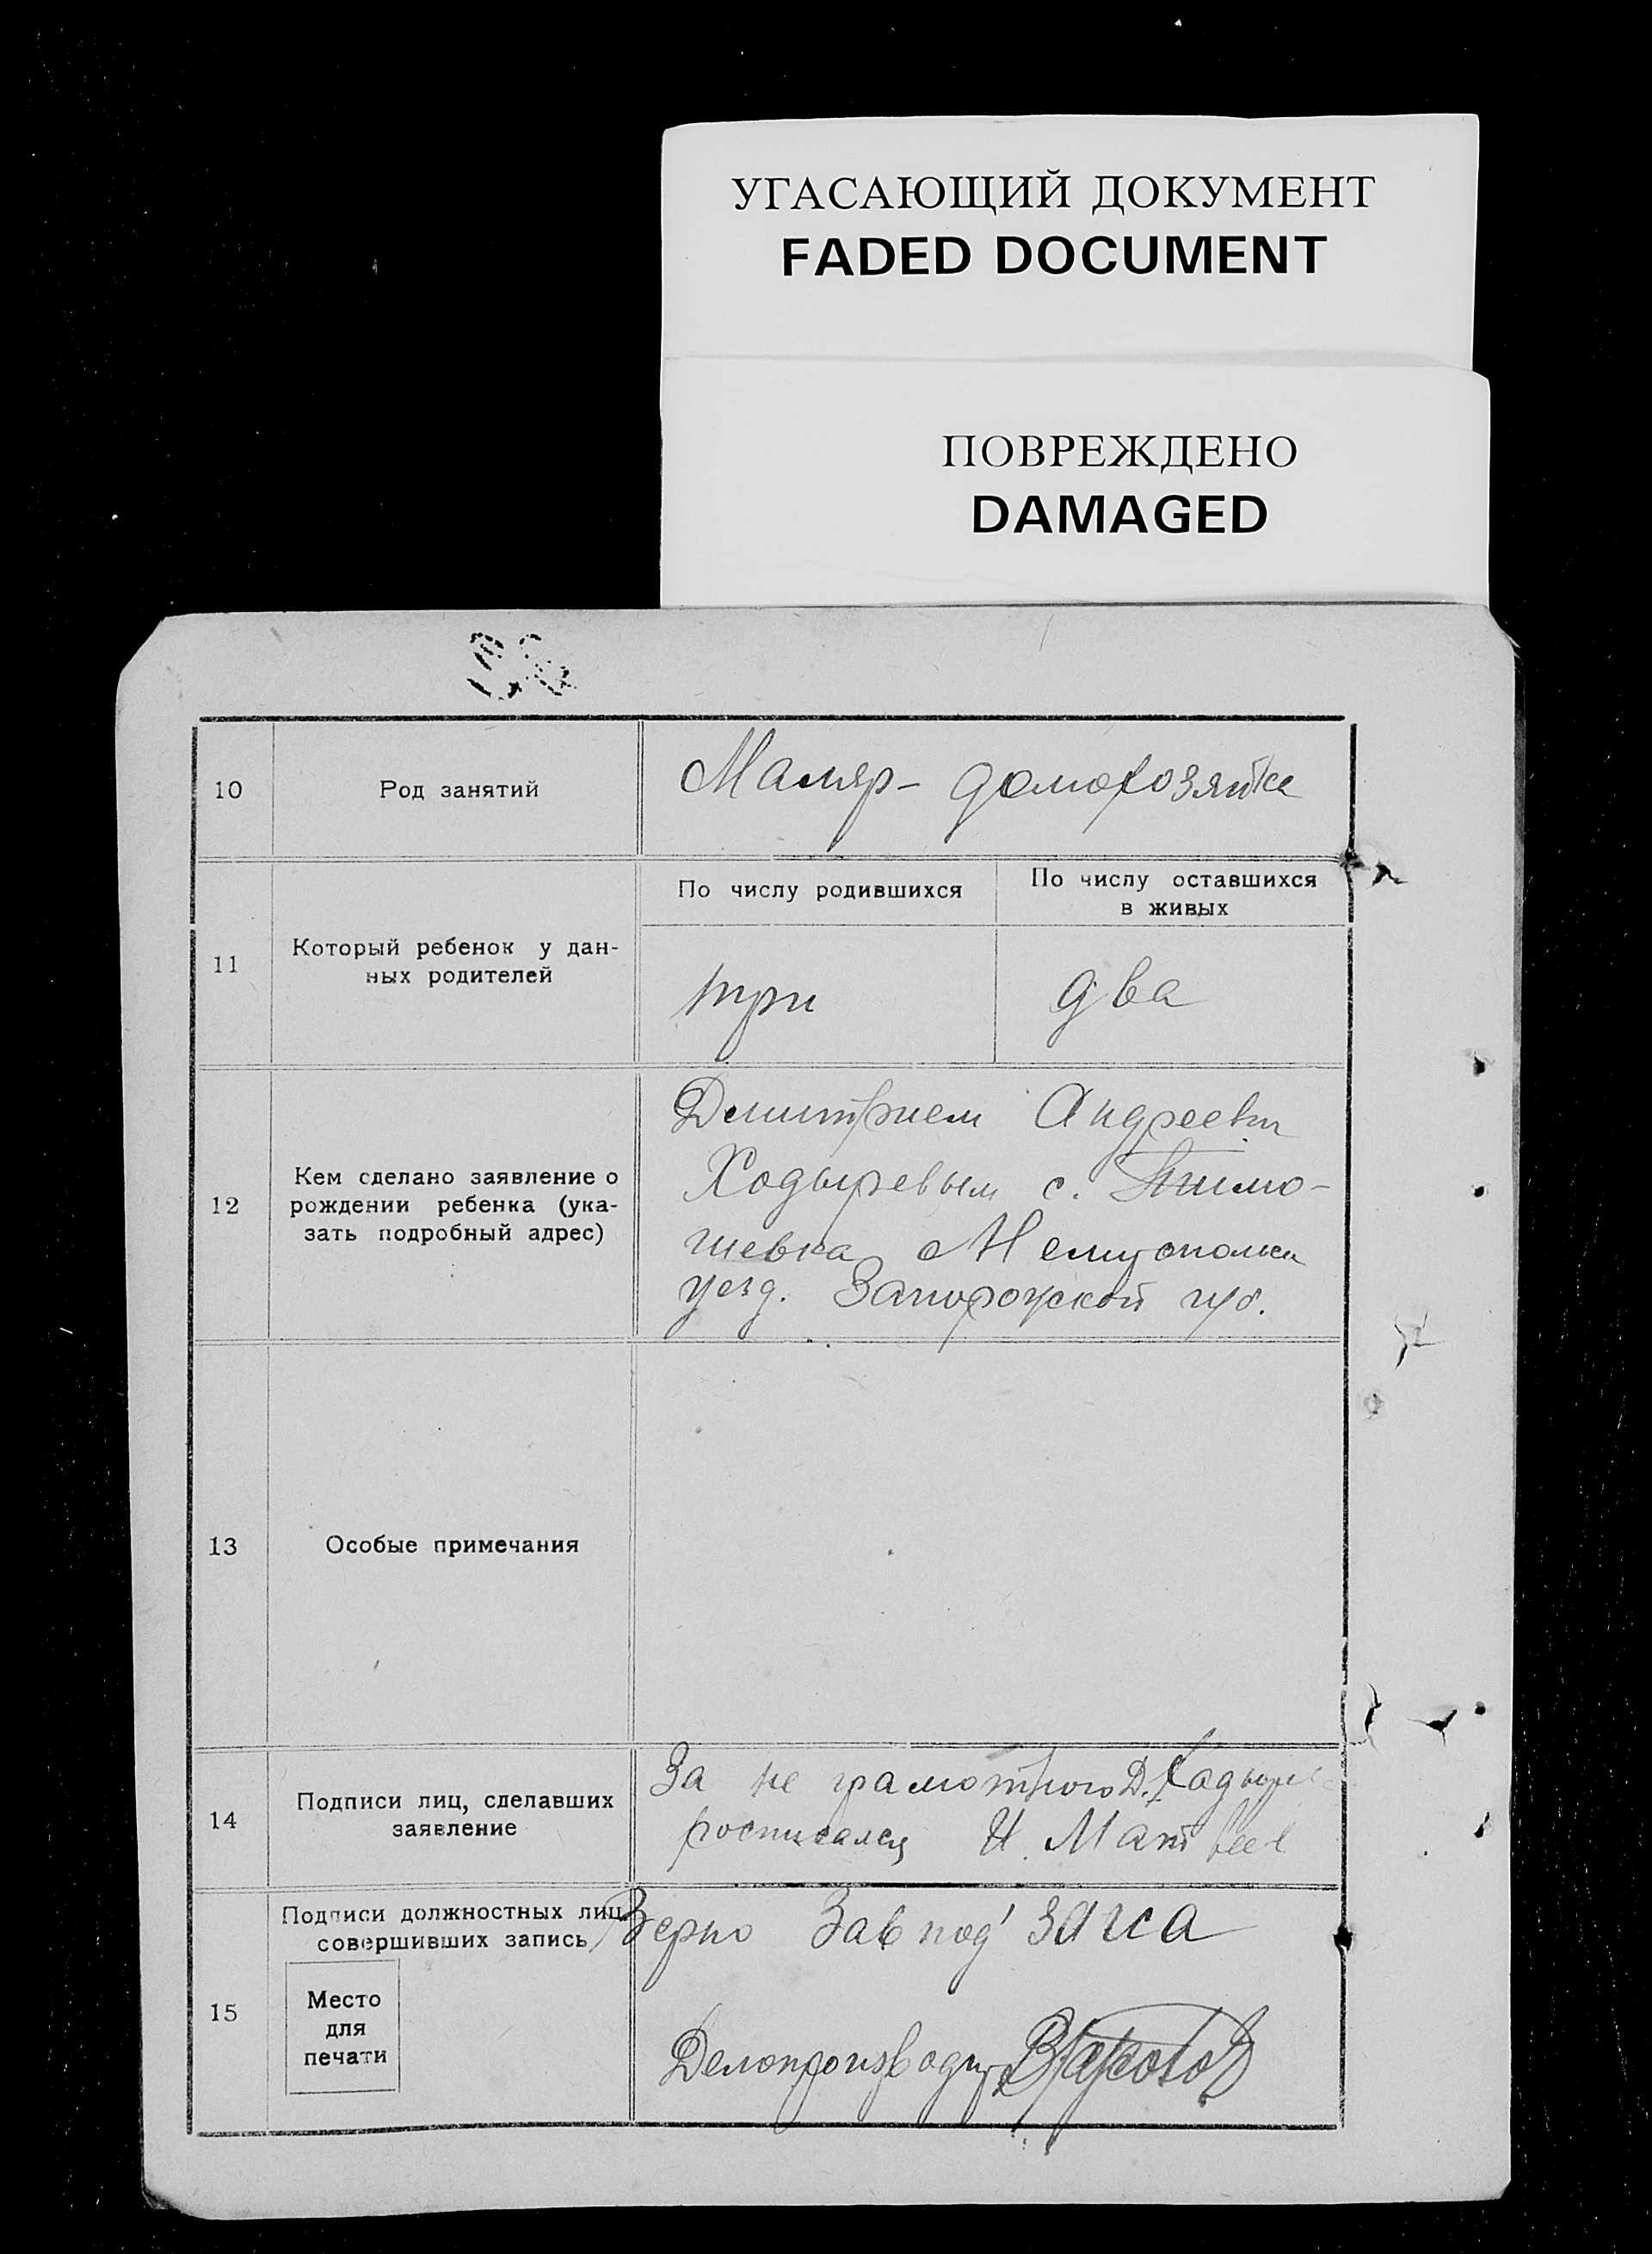 УГАСАЮЩИЙ ДОКУМЕНТ
FADED DOCUMENT
ПОВРЕЖДЕНО
DAMAGED
10
Род занятий
Маляр - домохозяйка
11
Который ребенок у дан-
ных родителей
По числу родившихся
три
По числу оставшихся
в живых
два
12
Кем сделано заявление о
рождении ребенка (ука-
зать подробный адрес)
Дмитрием Андреевич
Ходыревым с. Тимо-
шевка
уезд. Запорожской губ.
13
Особые примечания
14
Подписи лиц, сделавших
заявление
За не грамотного Д.
росписался И. Матвеев
15
Подписи должностных лиц,
совершивших запись
Место
для
печати
Верно Завпод' загса
Делопроизводит